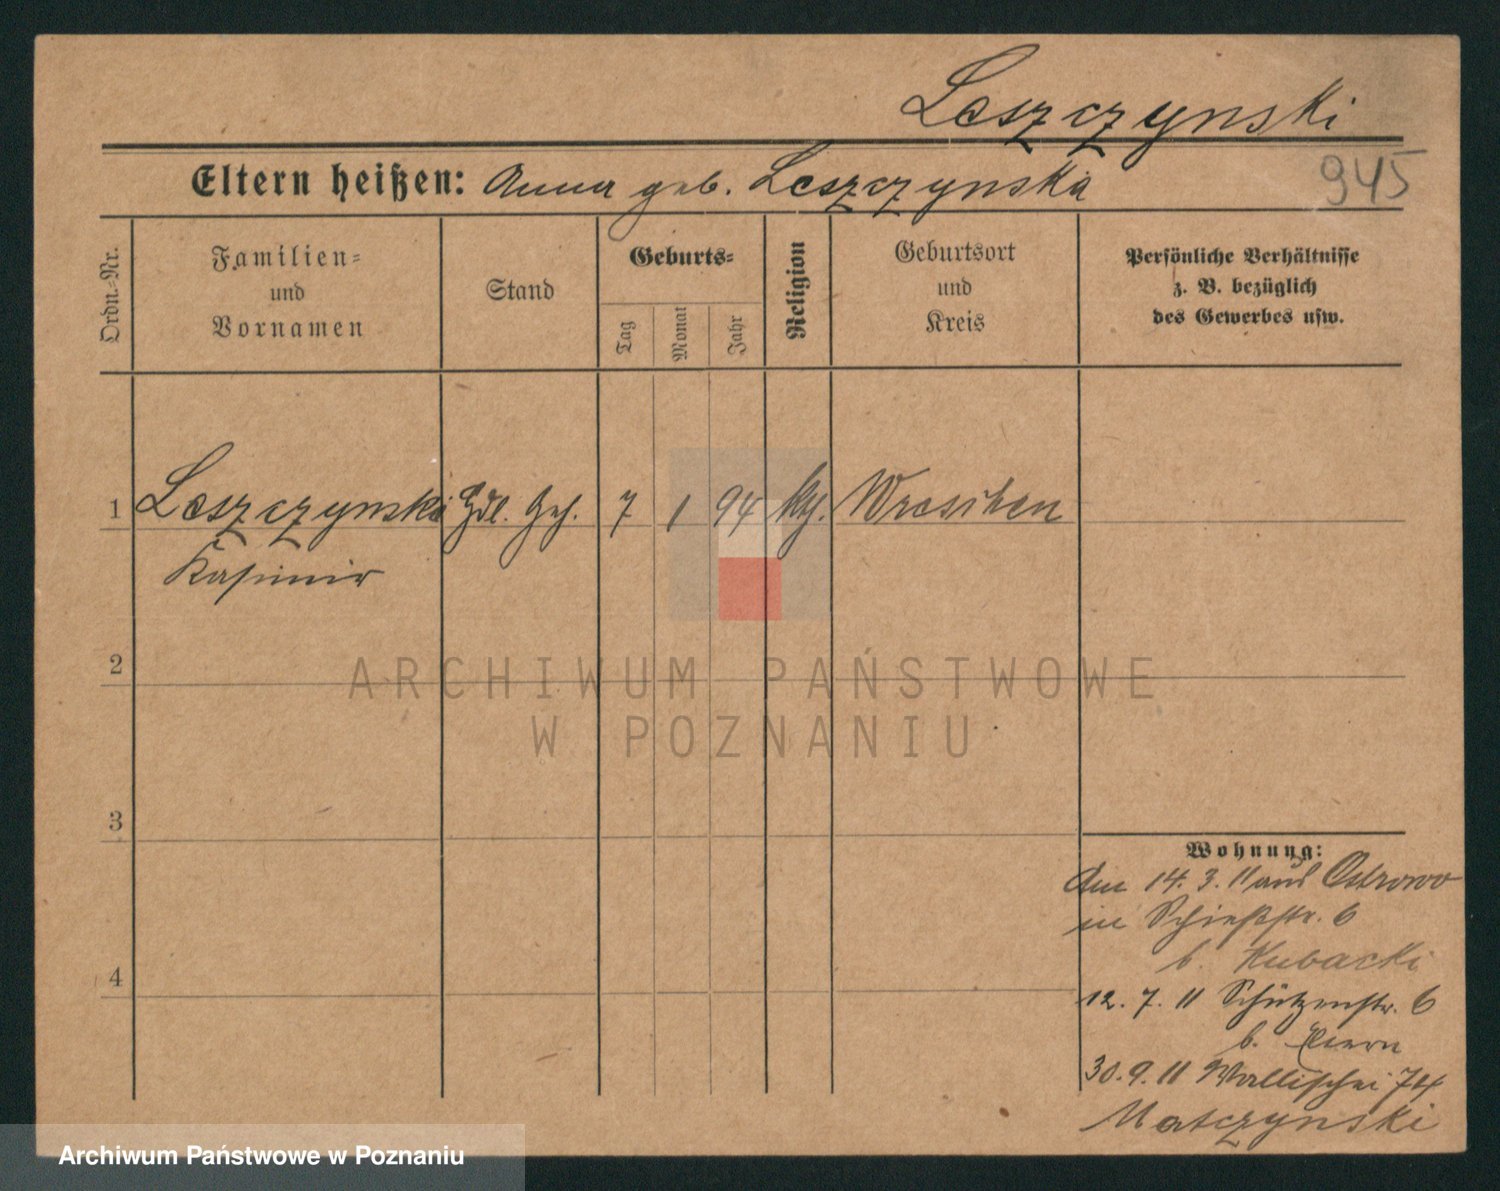 Leszczynski
945
Eltern heißen: Anna geb. Leszczynska
Ordn.-Nr.
Familien-
und
Vornamen
Stand
Geburts-
Tag
Monat
Jahr
Religion
Geburtsort
und
Kreis
Persönliche Verhältnisse
z. B. bezüglich
des Gewerbes usw.
1 Leszczynski Hdl. Geh. 7 1 94 kth. Wreschen
Kasimir
2
3
4
ARCHIWUM PAŃSTWOWE
W POZNANIU
Wohnung:
Am 14. 3. 11 aus Ostrowo
in Schießstr. 6
b. Kubacki
12. 7. 11 Schützenstr. 6
b.
30. 9. 11 Wallischei 74
Matczynski
Archiwum Państwowe w Poznaniu